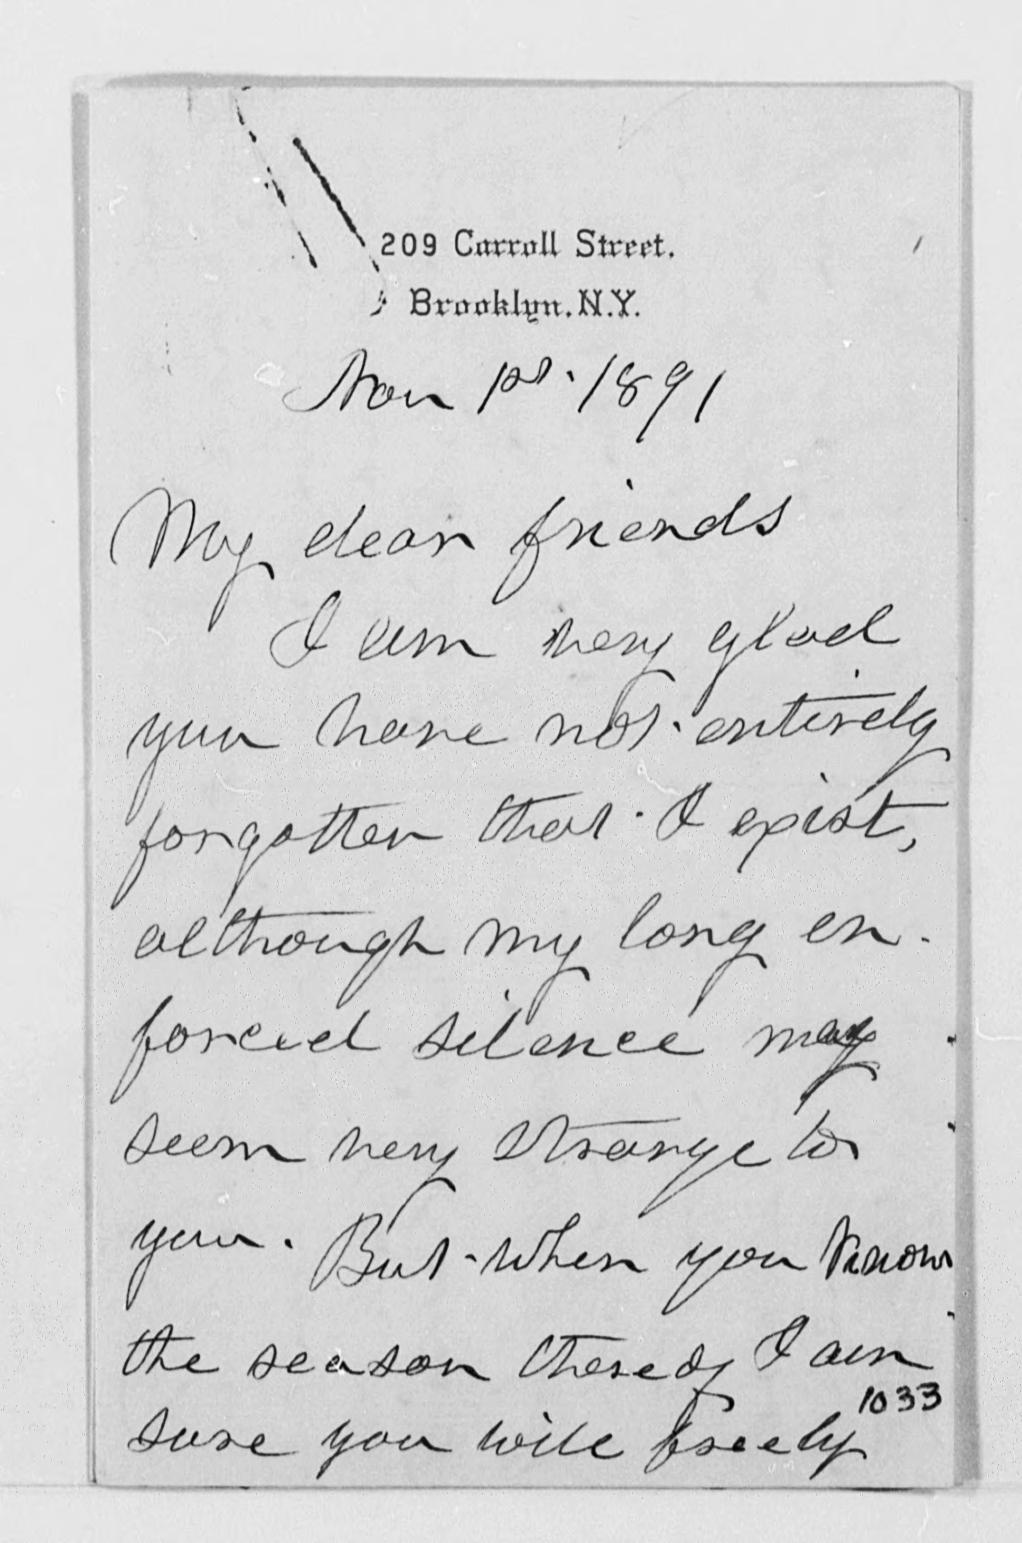 209 Carroll Street.
Brooklyn. N.Y.
Nov 1st. 1891
My dear friends
I am very glad
you have not entirely
forgotten that I exist,
although my long en-
forced silence may
seem very strange to
you. But when you know
the season thereof I am
1033
sure you will freely